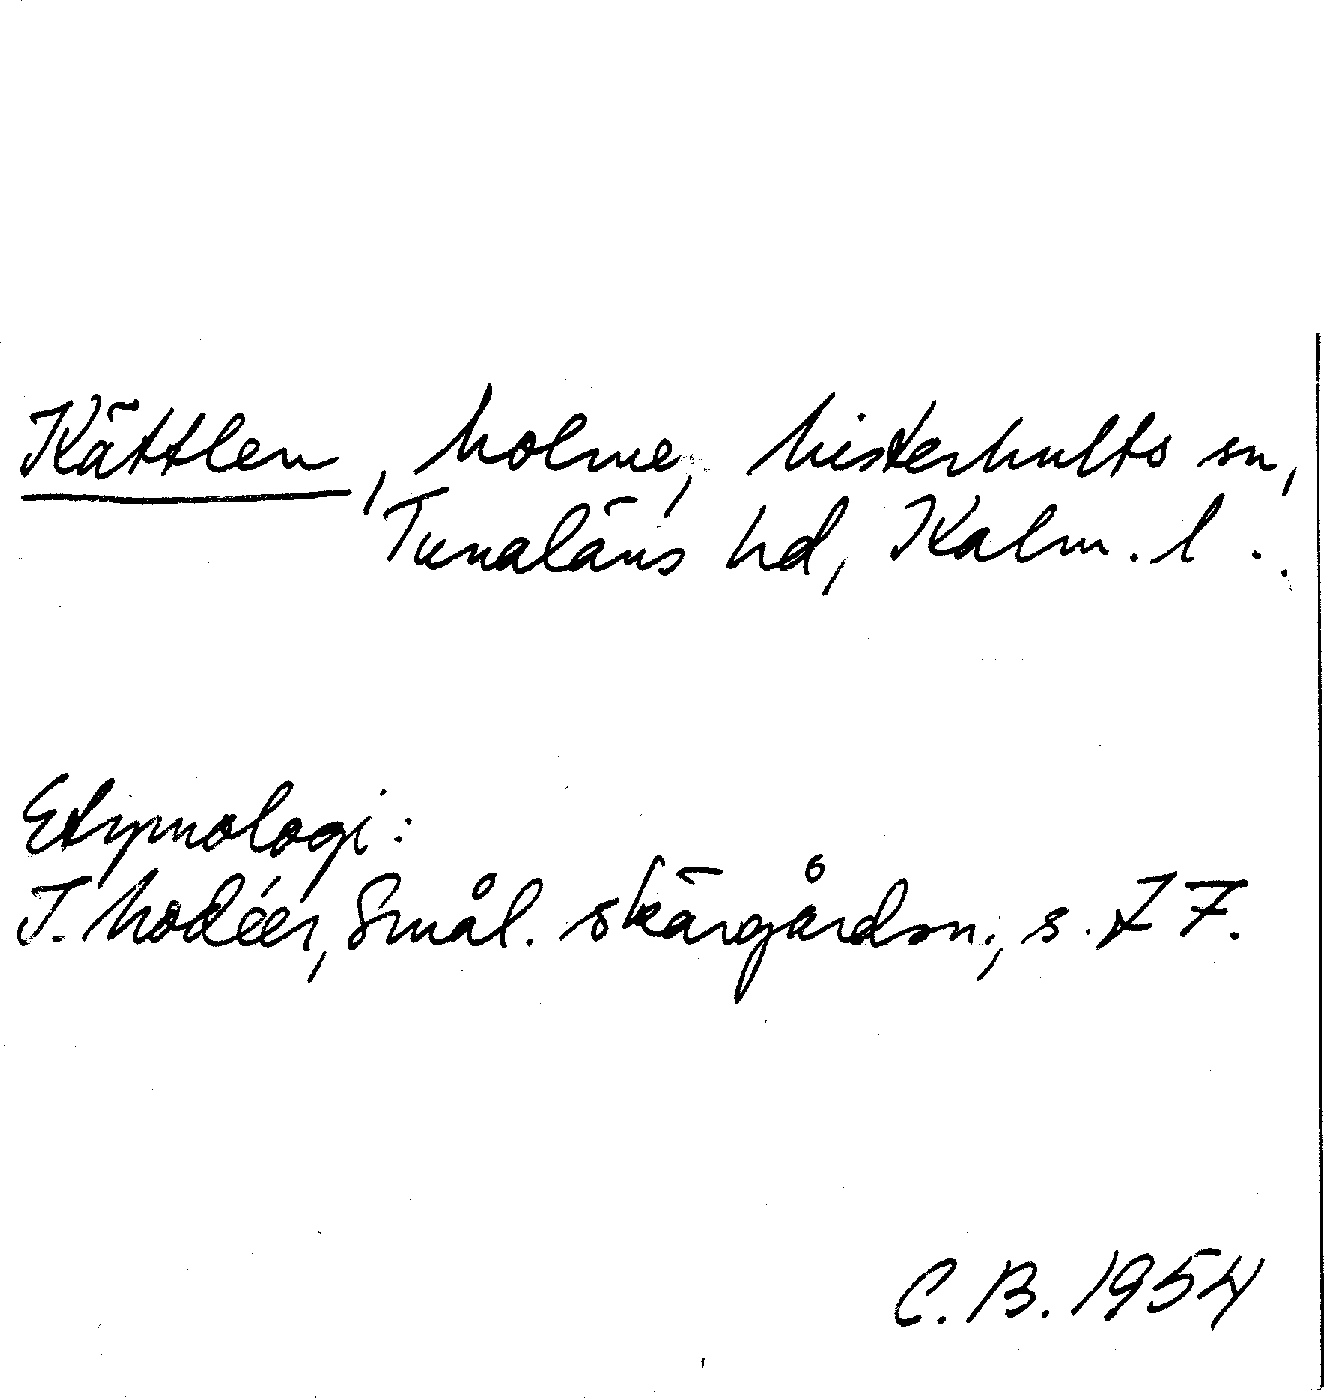 Kättlen, holme, Misterhults sn,
Tunaläns hd, Kalm. l.
Etymologi:
I. Modéer, Smål. skärgårdsn., s. 77.
C. B. 1954